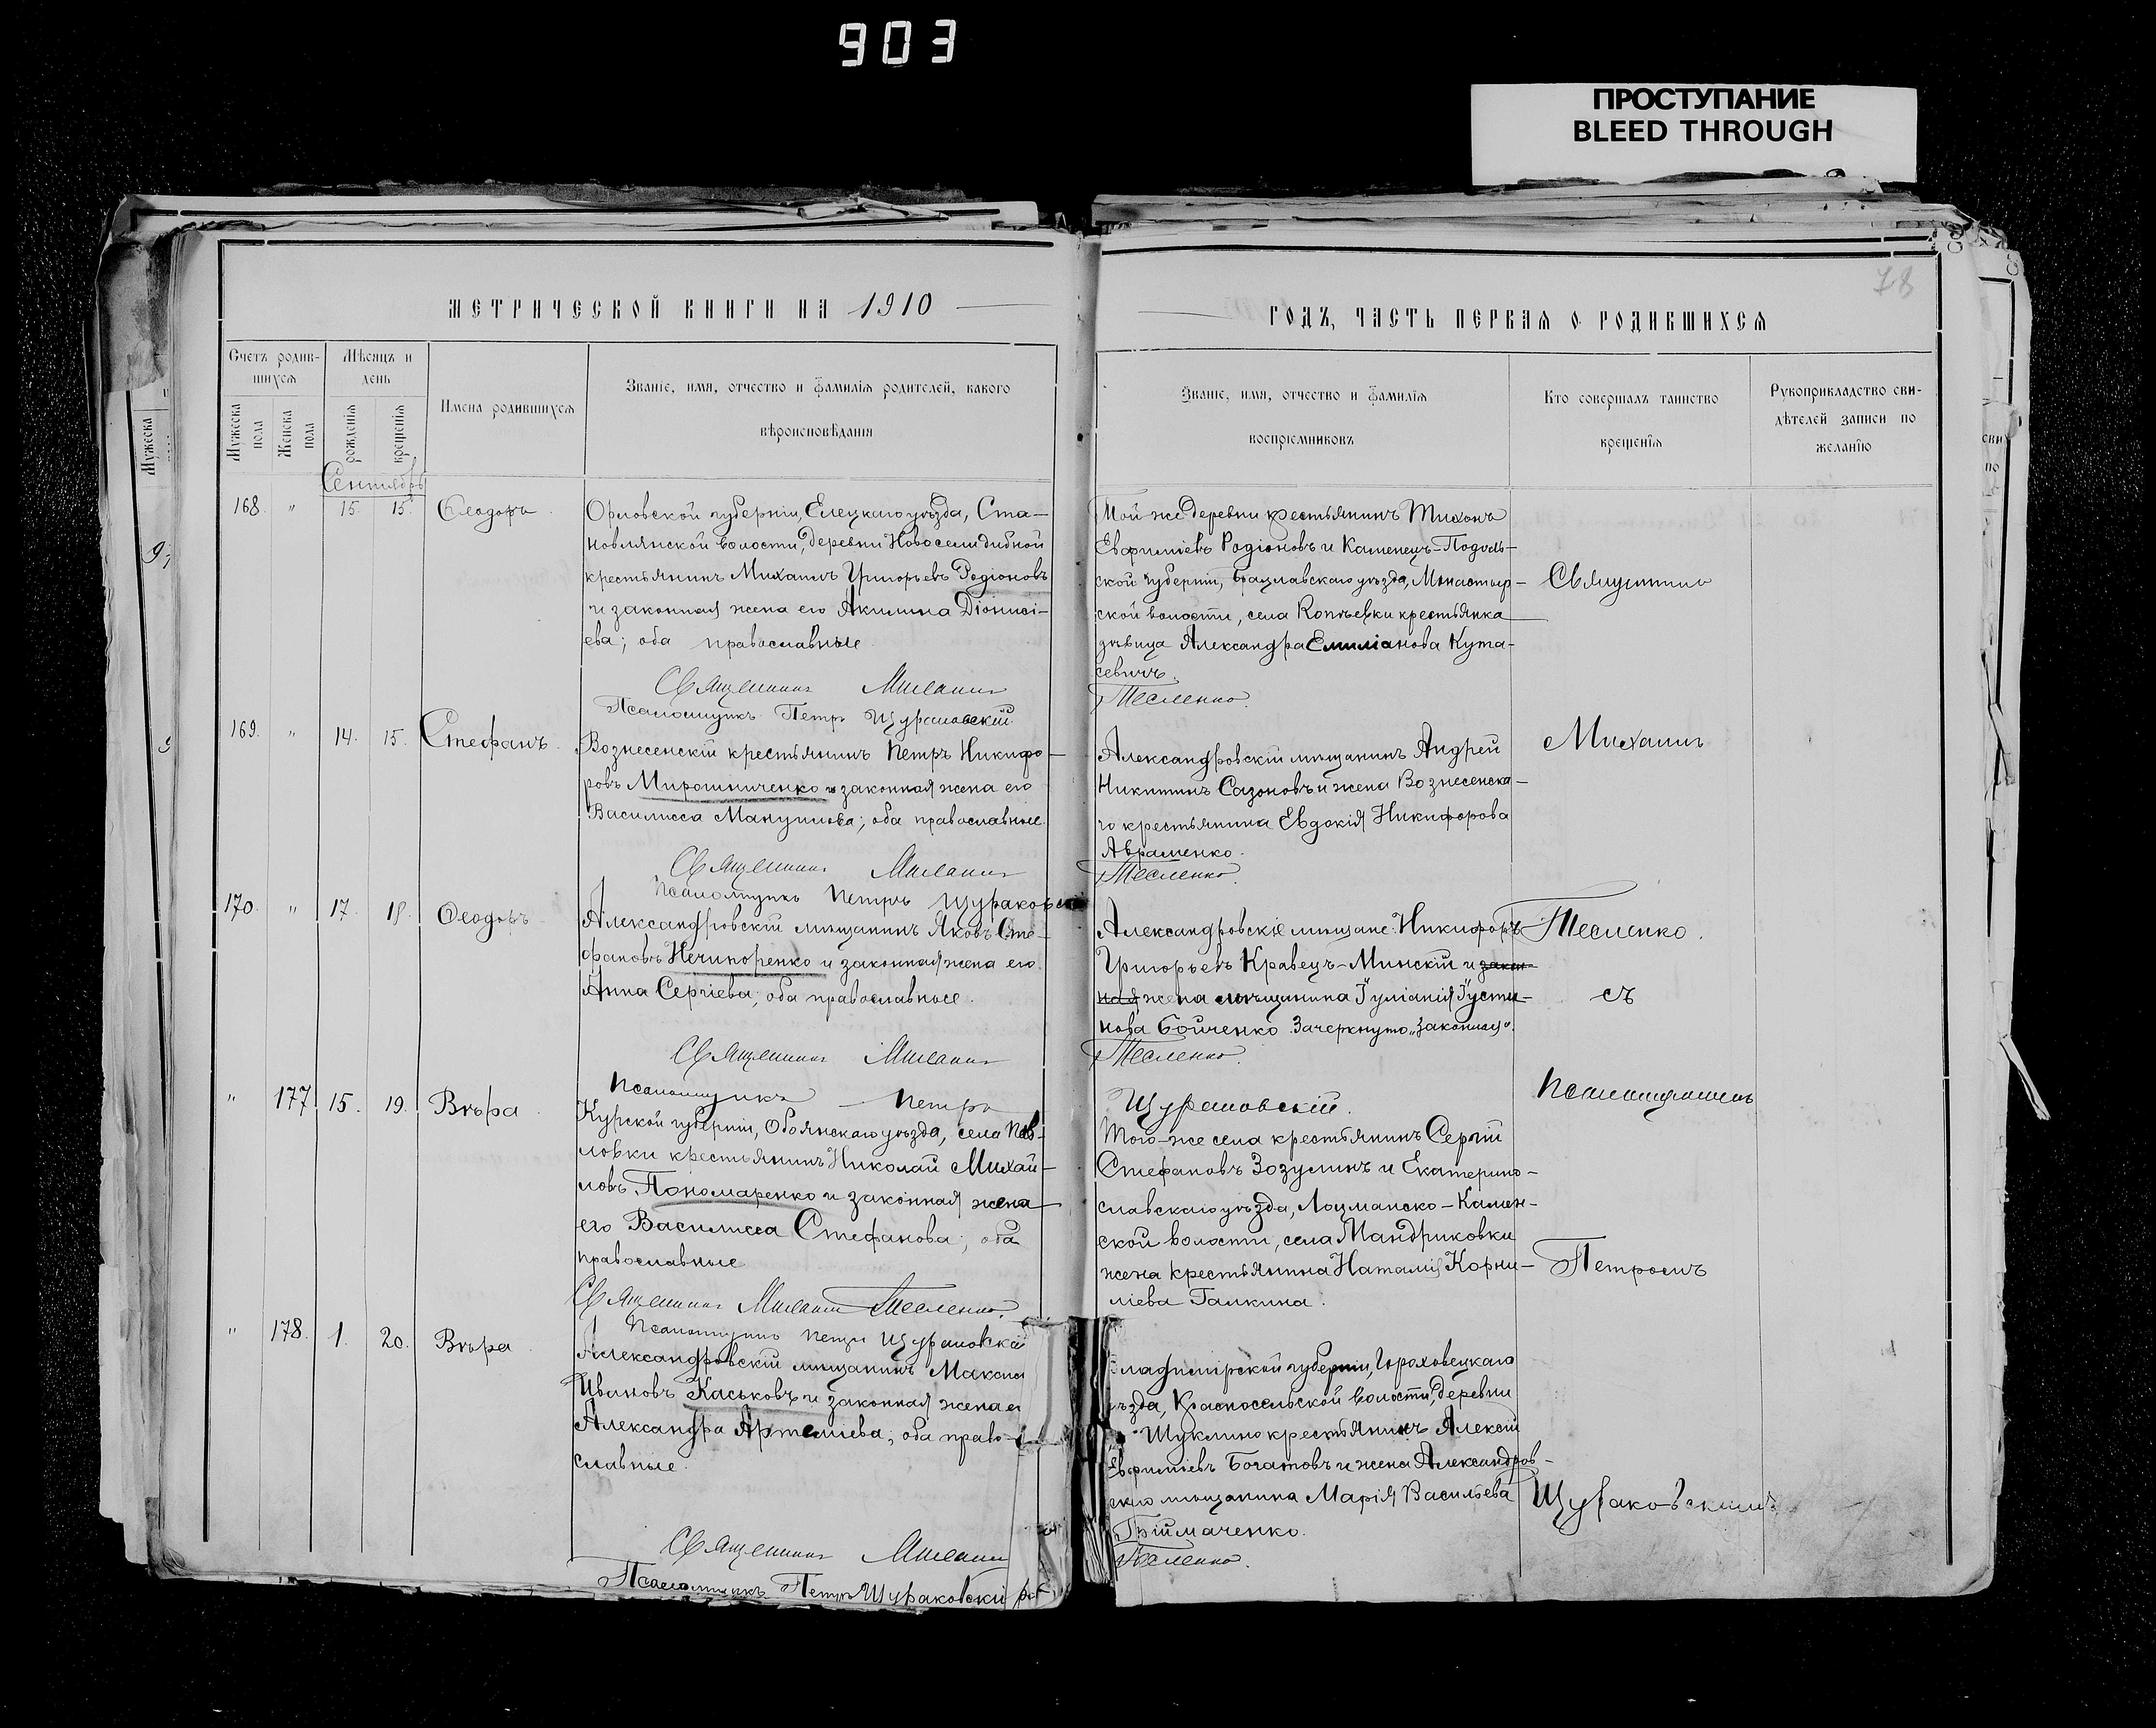 903
ПРОСТУПАНИЕ
BLEED THROUGH
78
МЕТРИЧЕСКОЙ КНИГИ НА 1910
ГОДЪ, ЧАСТЬ ПЕРВАЯ О РОДИВШИХСЯ
Счетъ родив-
шихся
Мужеска пола
Женска пола
Мѣсяцъ и
день
рожденія
крещенія
Имена родившихся
Званіе, имя, отчество и фамилія родителей, какого
вѣроисповѣданія
Званіе, имя, отчество и фамилія
воспріемниковъ
Кто совершалъ таинство
крещенія
Рукоприкладство сви-
дѣтелей записи по
желанію
Сентябрь
168. " 15. 15. Ѳеодоръ
Орловской губерніи, Елецкаго уѣзда, Ста-
новлянской волости, деревни
крестьянинъ Михаилъ Григорьевъ Родіоновъ
и законная жена его Акилина Діонисі-
ева; оба православные
Священникъ
Псаломщикъ Петръ Щураковскій
Той-же деревни крестьянинъ Тихонъ
Евфиміевъ Родіоновъ и Каменецъ-Подоль-
ской губерніи, Брацлавскаго уѣзда, Монастыр-
ской волости, села Копіевки крестьянка
дѣвица Александра Емиліанова Кута-
севичъ.
Тесленко.
169. " 14. 15. Стефанъ
Вознесенскій крестьянинъ Петръ Никифо-
ровъ Мирошниченко и законная жена его
Василисса Мануилова; оба православные.
Священникъ
Псаломщикъ Петръ Щураковскій
Александровскій мѣщанинъ Андрей
Никитинъ Сазоновъ и жена Вознесенска-
го крестьянина Евдокія Никифорова
Авраменко.
Тесленко.
170. " 17. 18. Ѳеодоръ
Александровскій мѣщанинъ Яковъ Сте-
фановъ Нечипоренко и законная жена его
Анна Сергіева; оба православные.
Священникъ
Псаломщикъ Петръ
Александровскіе мѣщане: Никифоръ
Григорьевъ Кравецъ-Минскій и закон-
ная жена мѣщанина Іуліанія Іусти-
нова Бойченко. Зачеркнуто „законная".
Тесленко.
Щураковскій.
" 177. 15. 19. Вѣра
Курской губерніи, Обоянскаго уѣзда, села Пав-
ловки крестьянинъ Николай Михай-
ловъ Пономаренко и законная жена
его Василисса Стефанова; оба
православные
Священникъ Тесленко.
Псаломщикъ Петръ Щураковскій
Того-же села крестьянинъ Сергій
Стефановъ Зозулинъ и Екатерино-
славскаго уѣзда, Лоцманско-Камен-
ской волости, села Мандриковки
жена крестьянина Наталія Корни-
ліева Галкина.
" 178. 1. 20. Вѣра
Александровскій мѣщанинъ Максим
Ивановъ Каськовъ и законная жена ег
Александра Артеміева; оба право-
славные.
Священникъ
Псаломщикъ Петръ Щураковскій
Владимірской губерніи, Гороховецкаго
уѣзда, Красносельской волости, деревни
Шуклино крестьянинъ Алексій
Евфиміевъ Богатовъ и жена Александров-
скаго мѣщанина Марія Васильева
Тесленко.
Священникъ
Михаилъ
Тесленко.
съ
Псаломщикомъ
Петромъ
Щураковскимъ